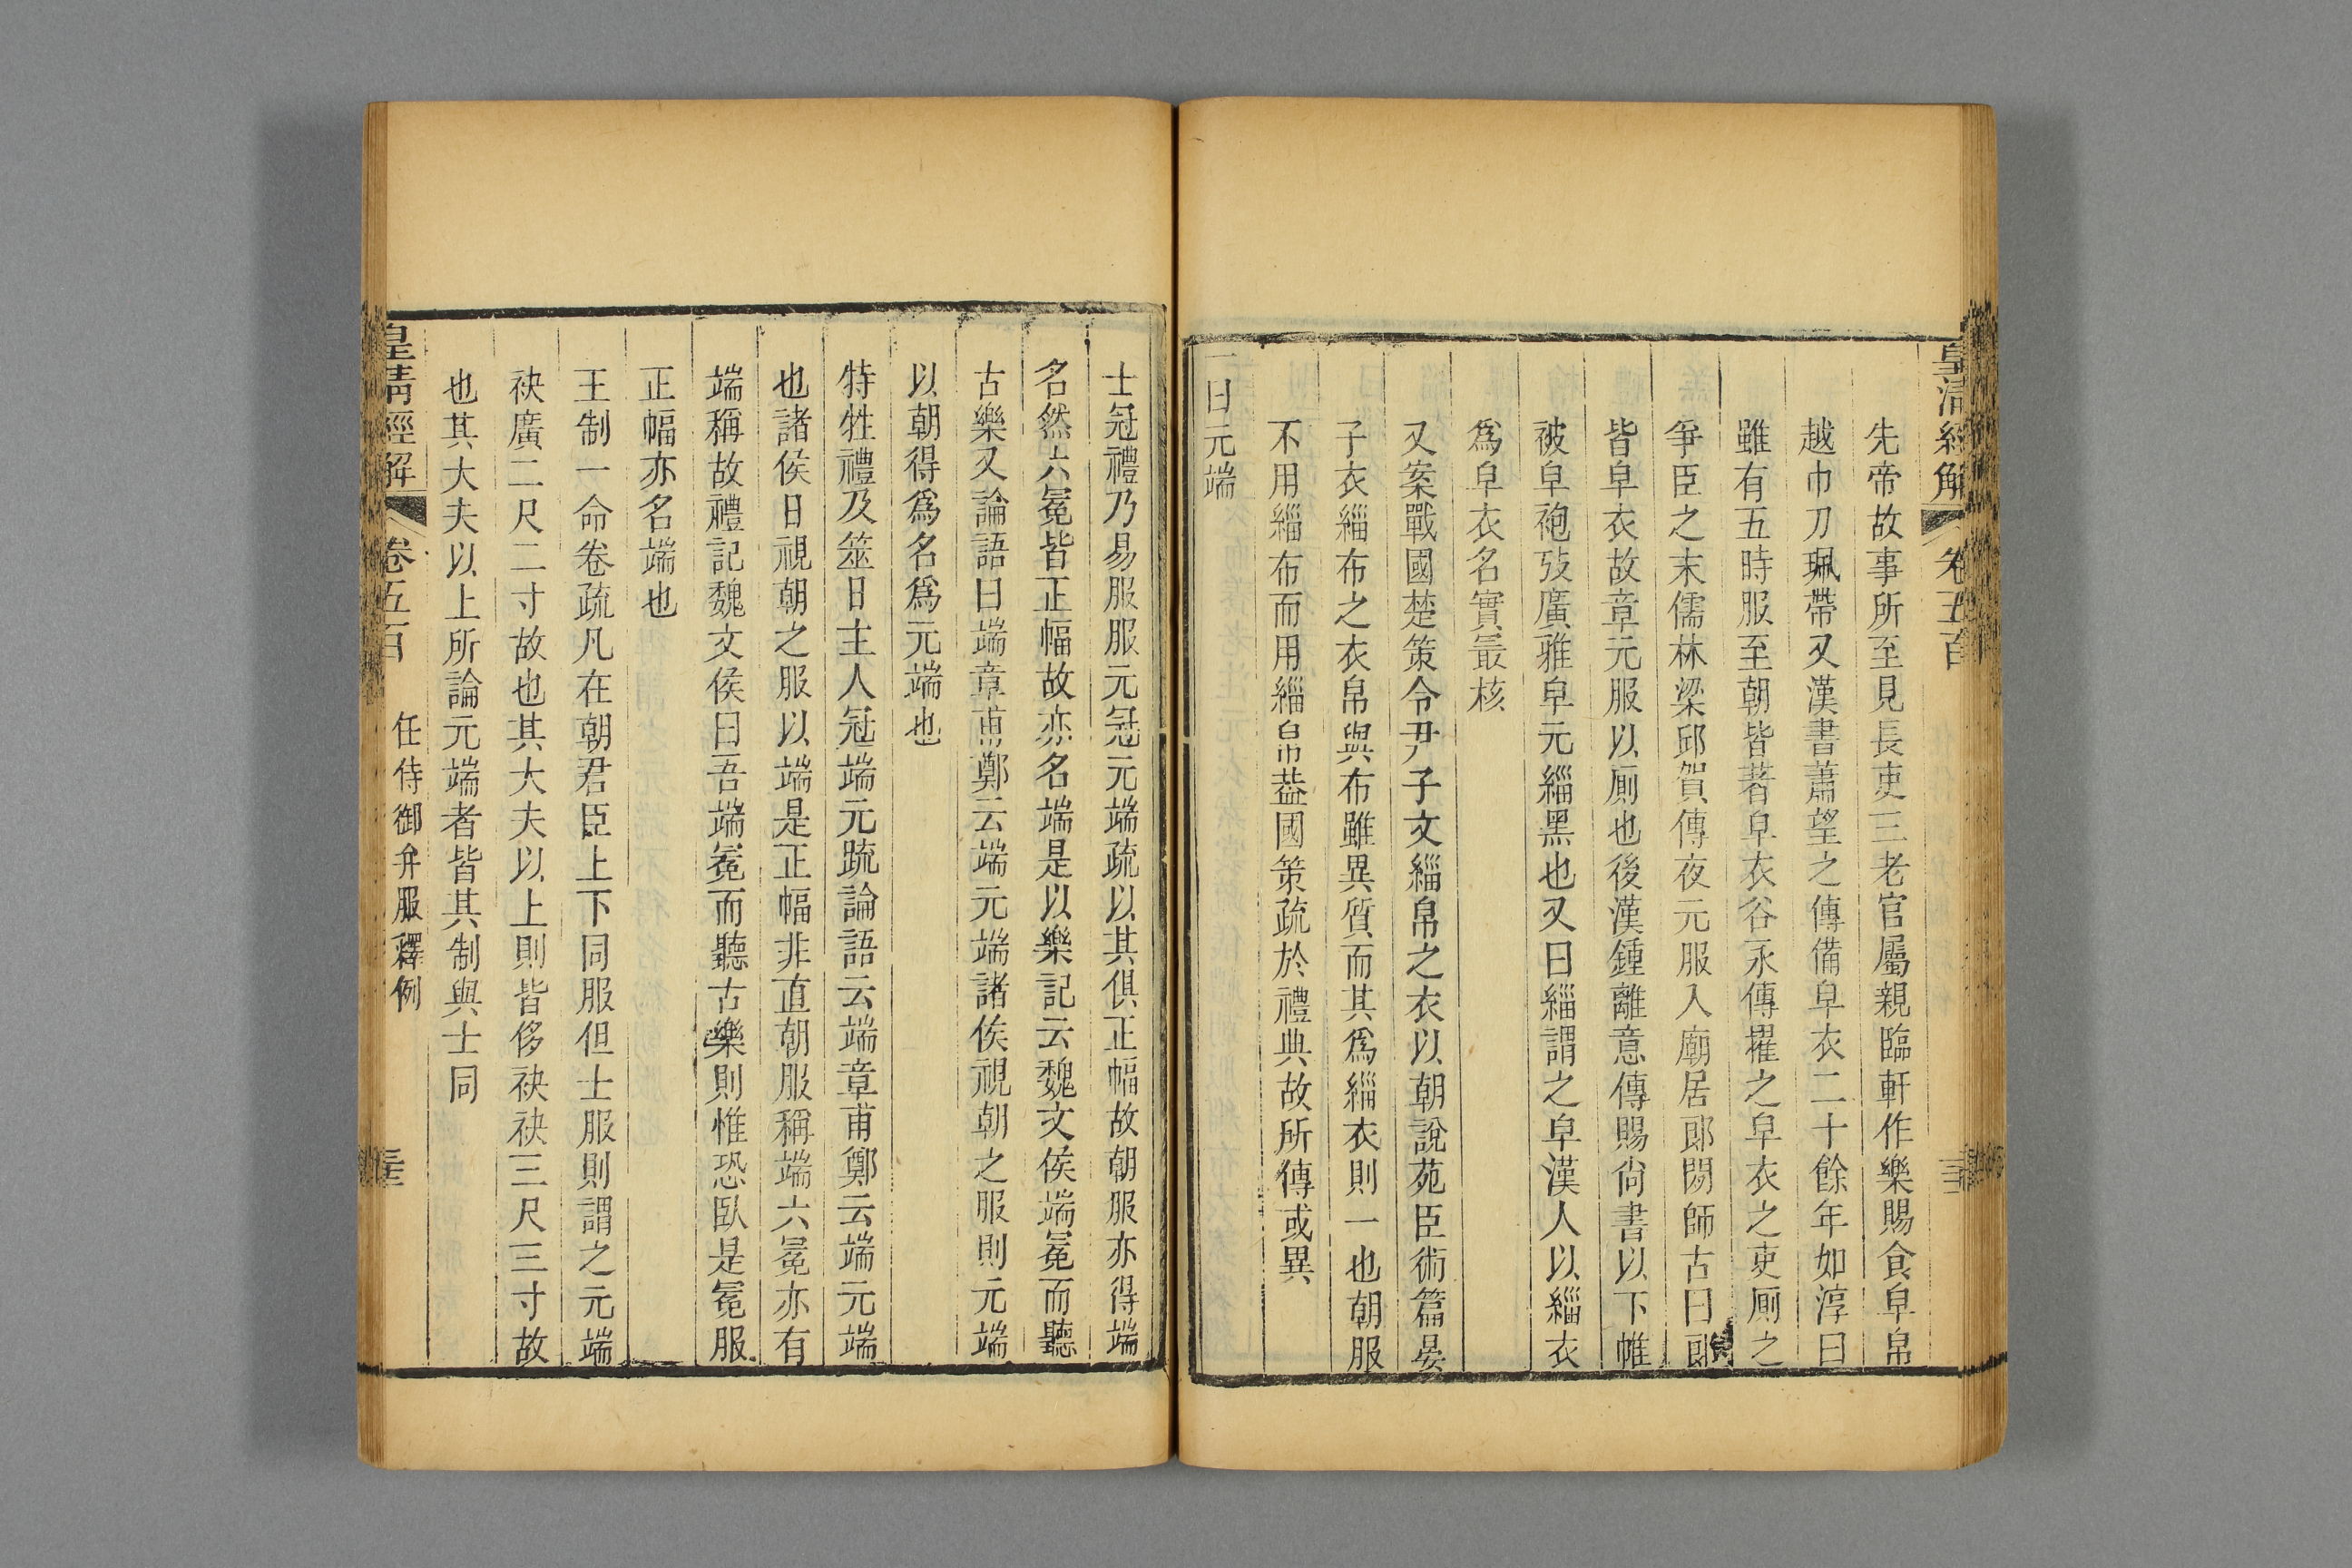 皇清經解 卷五百
先帝故事所至見長吏三老官屬親臨軒作樂賜食皁帛
越巾刀珮帶又漢書蕭望之傳備皁衣二十餘年如淳曰
雖有五時服至朝皆著皁衣谷永傳擢之皁衣之吏厠之
爭臣之末儒林梁邱賀傳夜元服入廟居郞閒師古曰郞
皆皁衣故章元服以厠也後漢鍾離意傳賜尙書以下帷
被皁袍攷廣雅皁元緇黑也又曰緇謂之皁漢人以緇衣
爲皁衣名實最核
又案戰國楚策令尹子文緇帛之衣以朝說苑臣術篇晏
子衣緇布之衣帛與布雖異質而其爲緇衣則一也朝服
不用緇布而用緇帛葢國策疏於禮典故所傳或異
一曰元端
士冠禮乃易服服元冠元端疏以其俱正幅故朝服亦得端
名然六冕皆正幅故亦名端是以樂記云魏文侯端冕而聽
古樂又論語曰端章甫鄭云端元端諸侯視朝之服則元端
以朝得爲名爲元端也
特牲禮及筮日主人冠端元疏論語云端章甫鄭云端元端
也諸侯日視朝之服以端是正幅非直朝服稱端六冕亦有
端稱故禮記魏文侯曰吾端冕而聽古樂則惟恐臥是冕服
正幅亦名端也
王制一命卷疏凡在朝君臣上下同服但士服則謂之元端
袂廣二尺二寸故也其大夫以上則皆侈袂袂三尺三寸故
也其大夫以上所論元端者皆其制與士同
皇清經解 卷五百 任侍御弁服釋例